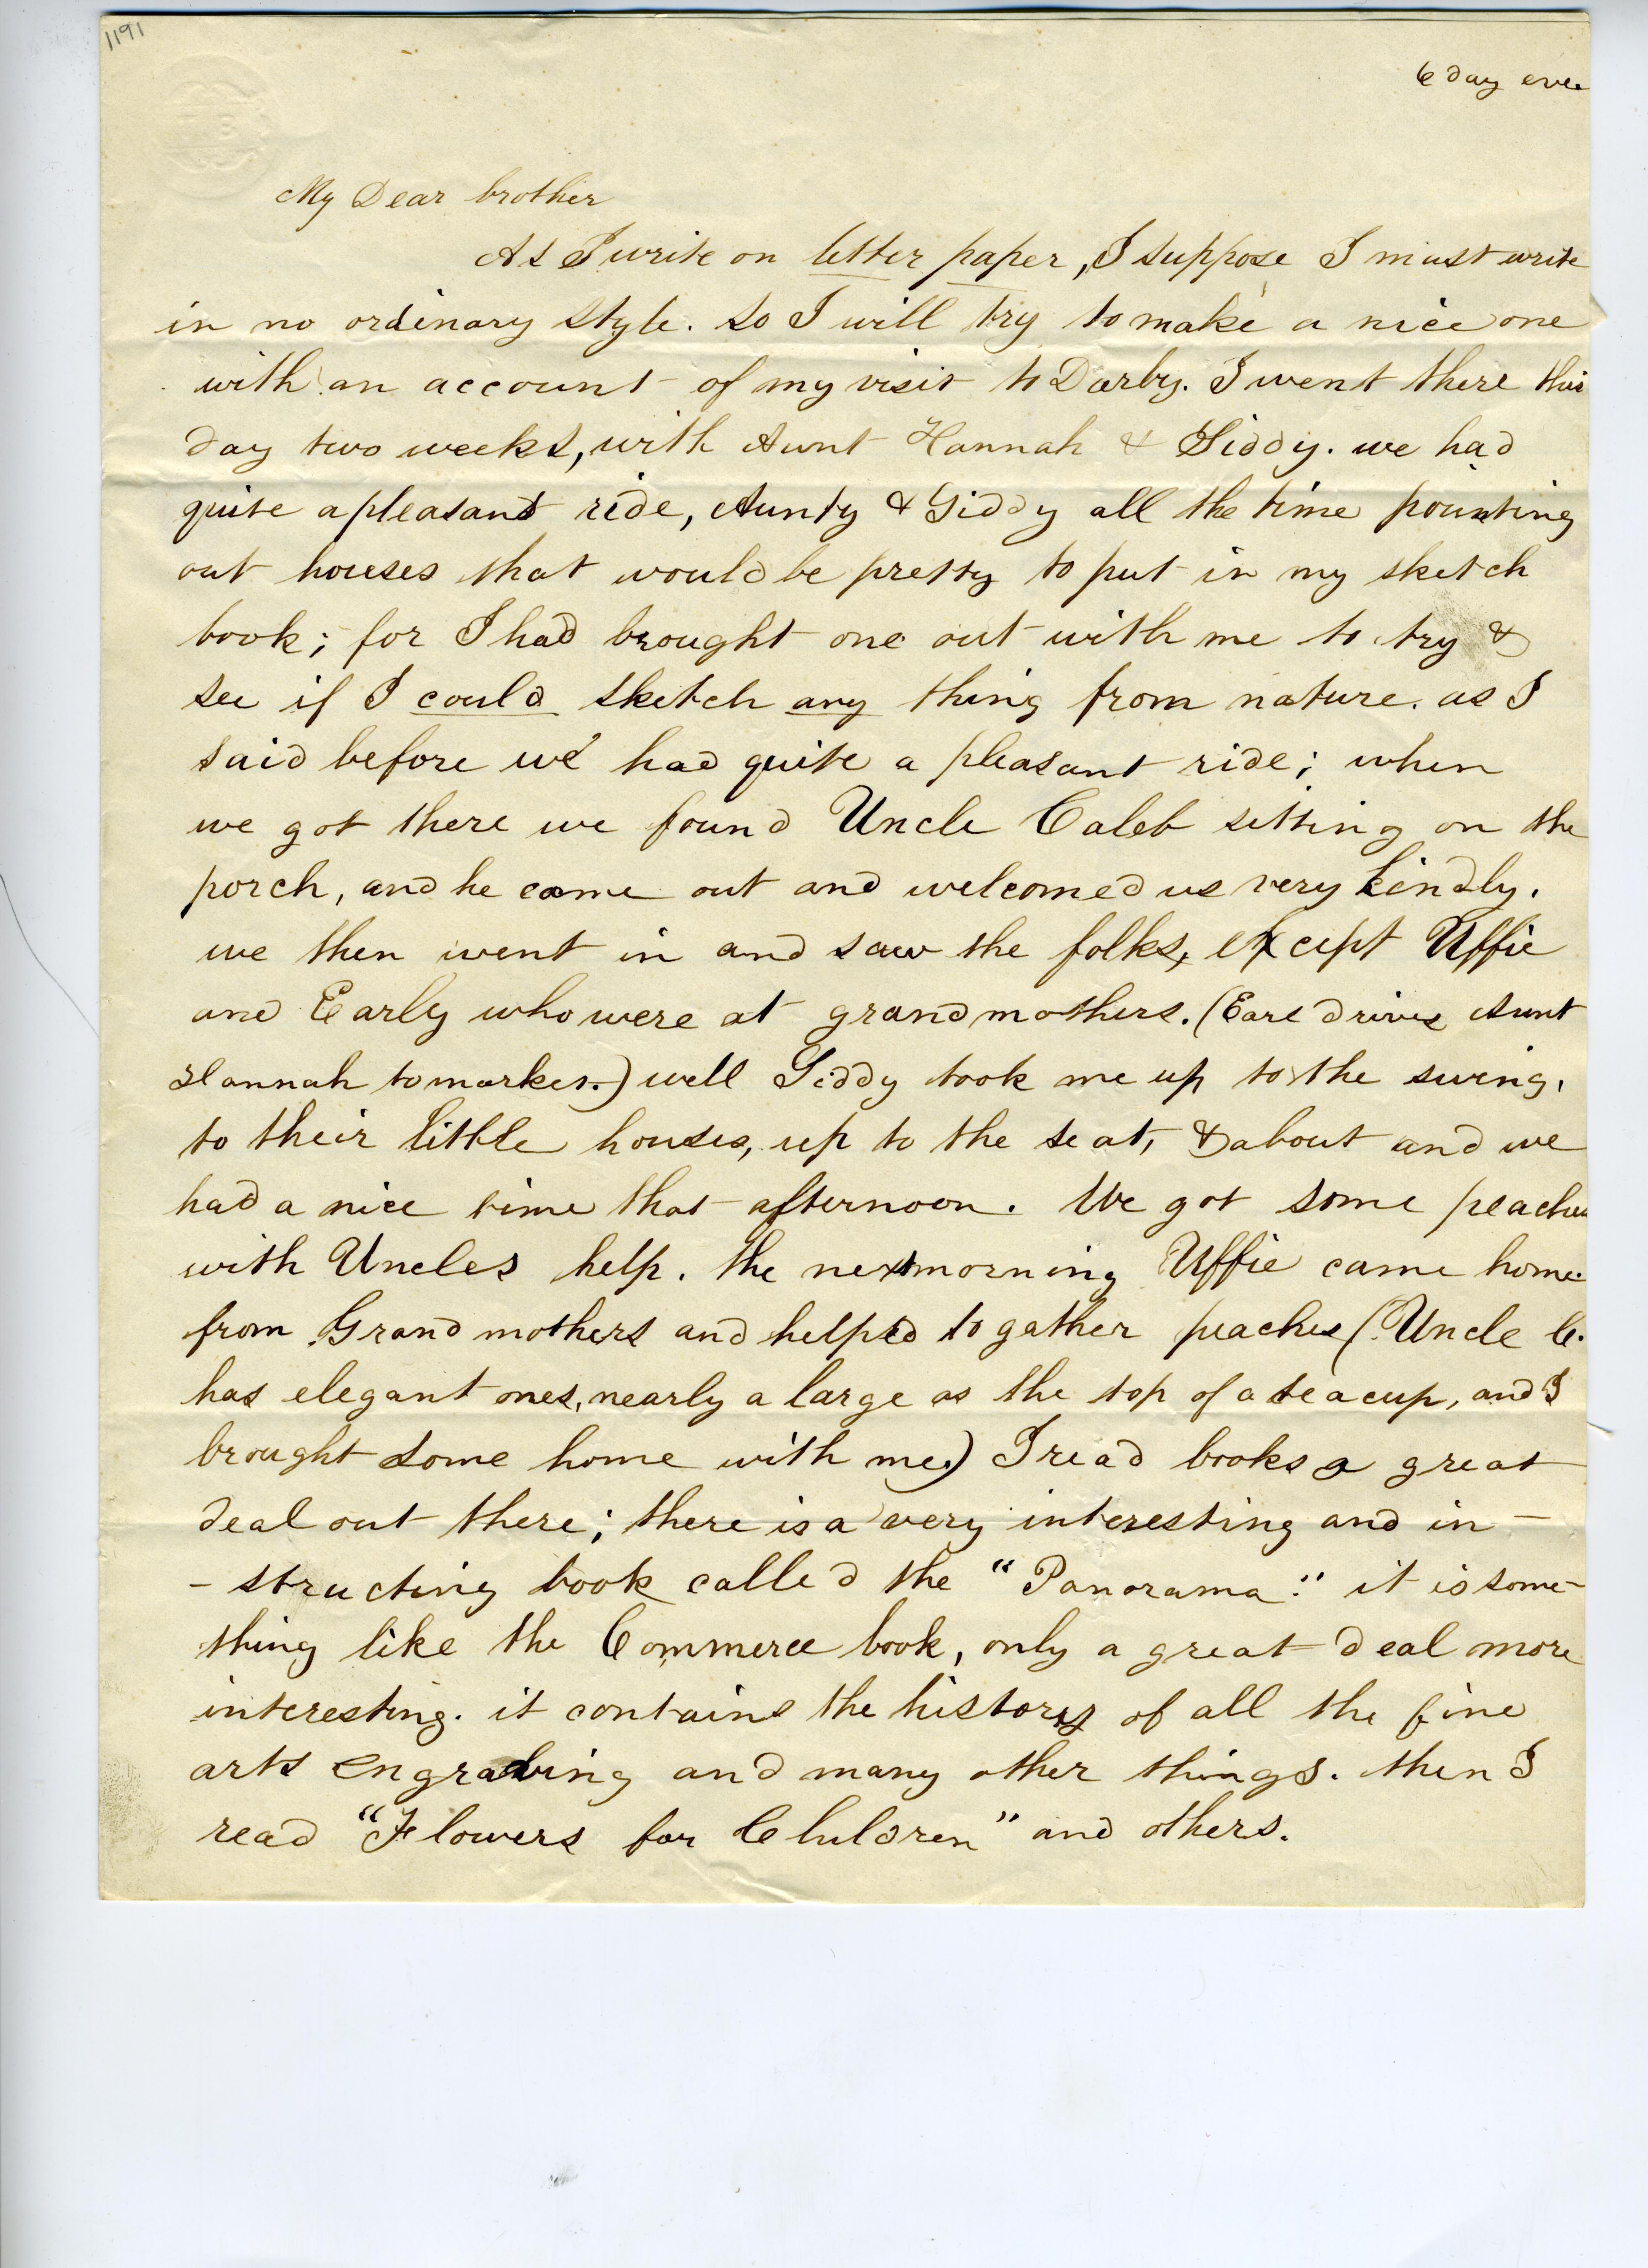 1191
6 day eve.
My Dear brother
As I write on letter paper, I suppose I must write
in no ordinary style. so I will try to make a nice one
with an account of my visit to Darby. I went there this
day two weeks, with Aunt Hannah & Siddy. we had
quite a pleasant ride, Aunty & Siddy all the time pointing
out houses that would be pretty to put in my sketch
book; for I had brought one out with me to try &
see if I could sketch any thing from nature. as I
said before we had quite a pleasant ride; when
we got there we found Uncle Caleb sitting on the
porch, and he came out and welcomed us very kindly.
we then went in and saw the folks, except Uffie
and Early who were at grandmothers. (Earl drives Aunt
Hannah to market.) well Siddy took me up to the swing,
to their little houses, up to the seat, & about and we
had a nice time that afternoon. We got some peaches
with Uncles help. the next morning Uffie came home
from Grandmothers and helped to gather peaches (Uncle C.
has elegant ones, nearly a large as the top of a teacup, and I
brought some home with me.) I read books a great
deal out there; there is a very interesting and in-
-structing book called the "Panorama." it is some-
thing like the Commerce book, only a great deal more
interesting. it contains the history of all the fine
arts engraving and many other things. then I
read "Flowers for Children" and others.